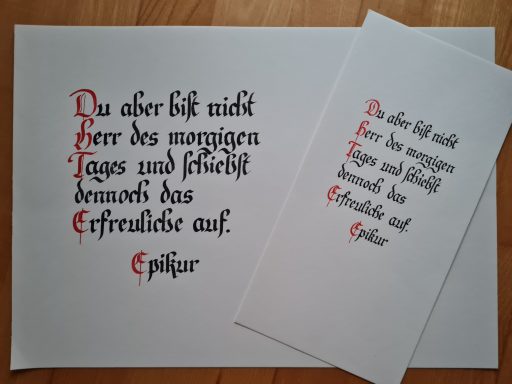 Du aber bist nicht
Herr des morgigen
Tages und schiebst
dennoch das
Erfreuliche auf.
Epikur
Du aber bist nicht
Herr des morgigen
Tages und schiebst
dennoch das
Erfreuliche auf.
Epikur